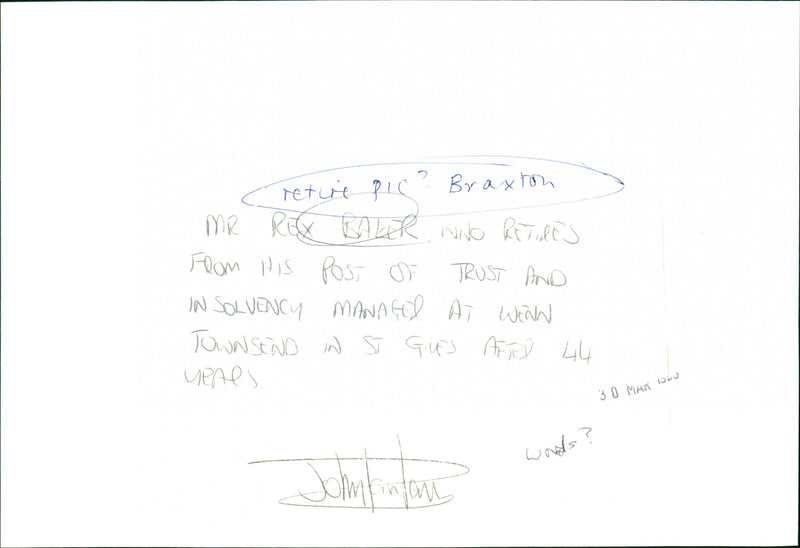 retire pic? Braxton
MR REX BAKER WHO RETIRES
FROM HIS POST OF TRUST AND
INSOLVENCY MANAGER AT WENN
TOWNSEND IN ST GILES AFTER 44
YEARS
30 MAR
words?
John